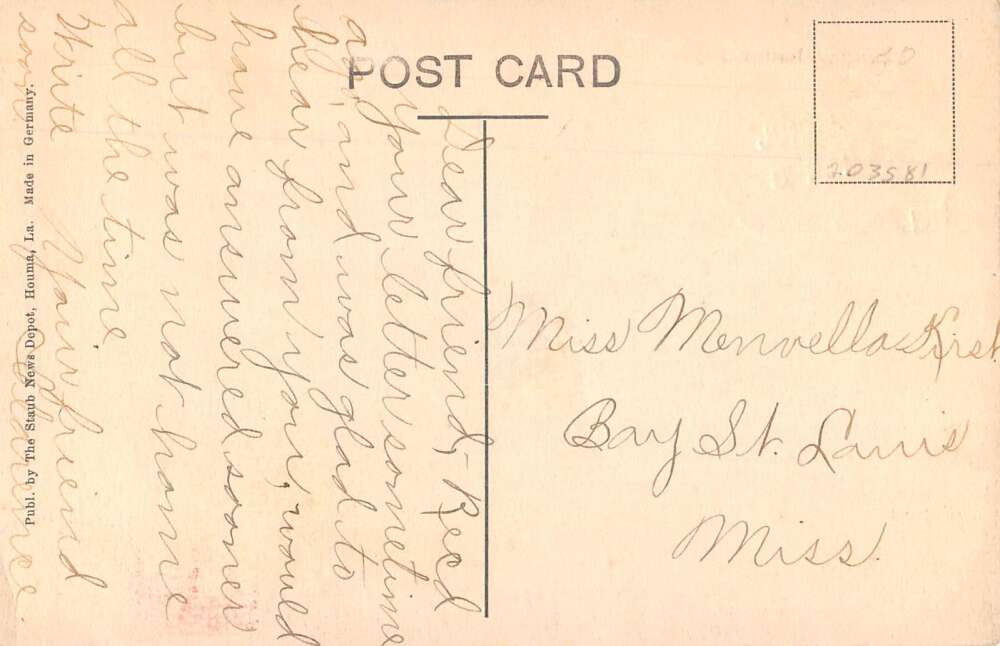 POST CARD
203581
Dear friend,- Recd
your letter sometime
ago, and was glad to
hear from you, would
have answered sooner
but was not home
all the time
Write
soon
Your friend
Clarence.
Miss Menvella Kirst
Bay St. Louis
Miss.
Publ. by The Staub News Depot, Houma, La. Made in Germany.